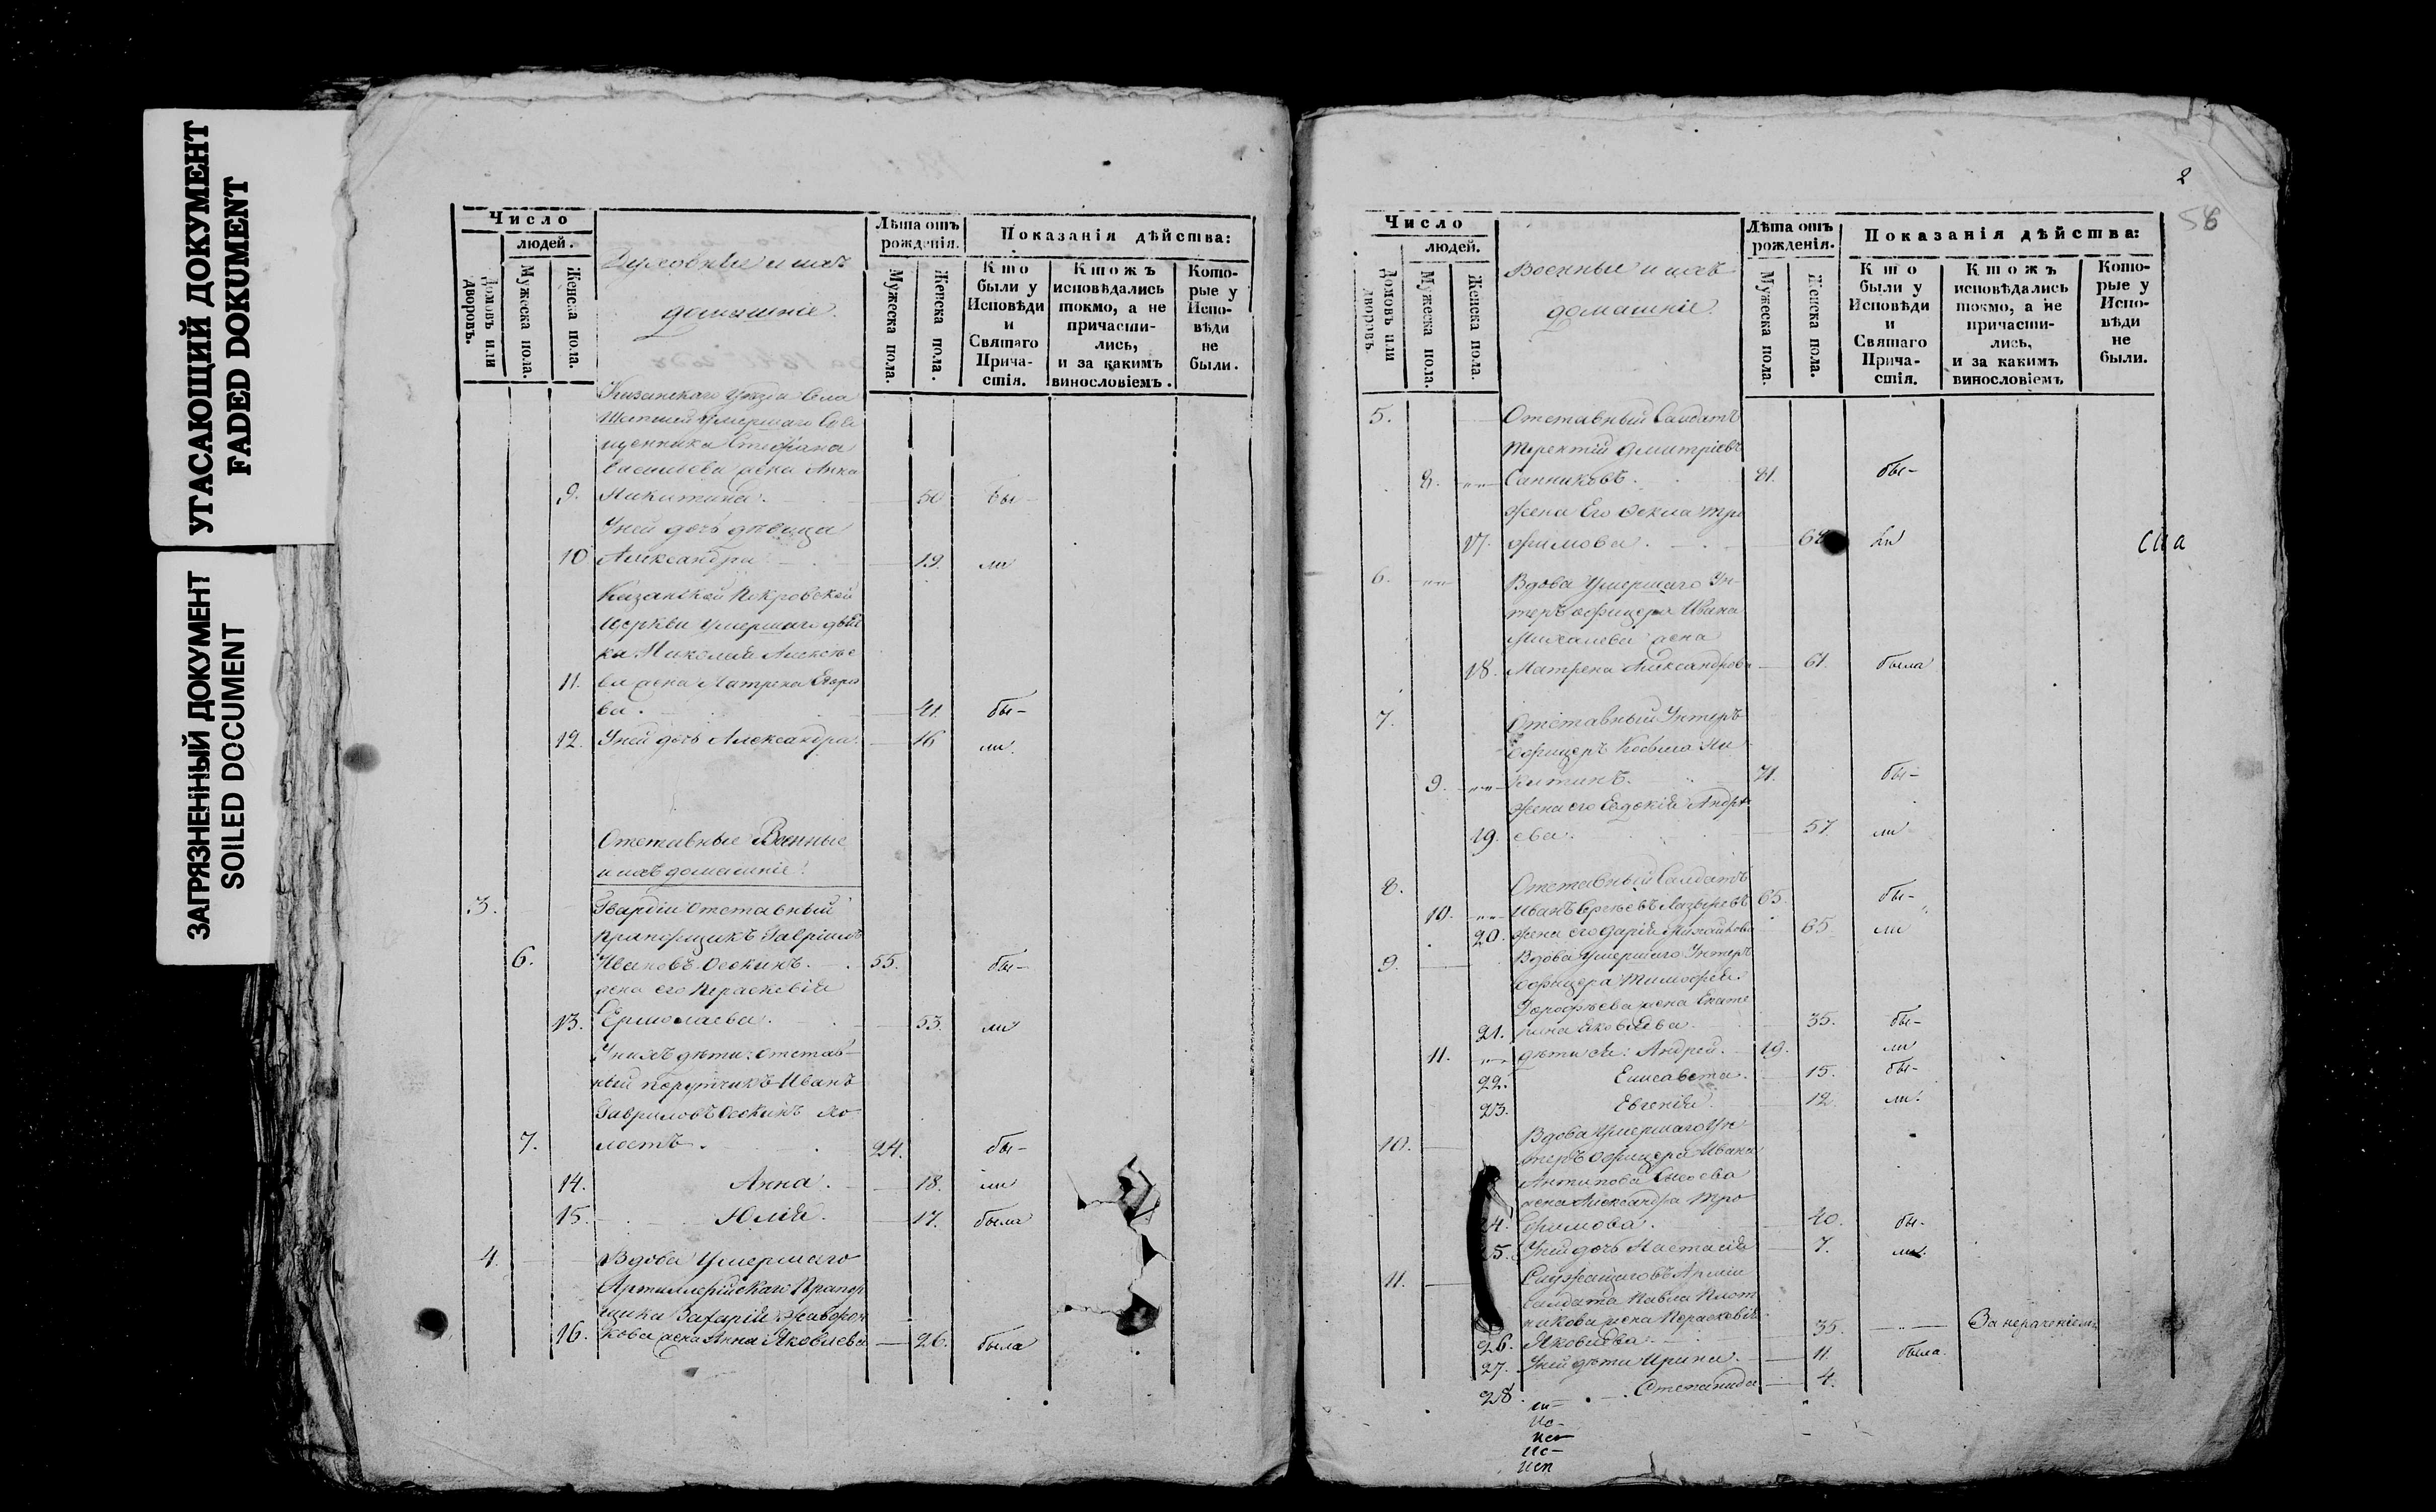 УГАСАЮЩИЙ ДОКУМЕНТ
FADED DOKUMENT
ЗАГРЯЗНЕННЫЙ ДОКУМЕНТ
SOILED DOCUMENT
Число
людей.
Домовъ или дворовъ.
Мужеска пола.
Женска пола.
Духовные и ихъ
домашніе.
Лѣта отъ рожденія.
Мужеска пола.
Женска пола.
Показанія дѣйства:
Кто были у Исповѣди и Святаго Прича-стія.
Ктожъ исповѣдались токмо, а не причасти-лись, и за какимъ винословіемъ.
Кото-рые у Испо-вѣди не были.
Казанскаго Уѣзда Села
умершаго Свя
щенника Стефана
Васильева жена Анна
9. Никитина. 50 бы-
У ней дочь дѣвица
10 Александра 19. ли
Казанской Покровской
Церкви умершаго дьяч
ка Николая Алексѣе
11. ва жена Матрена Егоро
ва. 41. бы-
12. У ней дочь Александра. 16 ли.
Отставные Военные
и ихъ домашніе.
3. Гвардіи Отставный
Прапорщикъ Гавріилъ
6. Ивановъ Оскинъ. 55. бы-
жена его Параскевія
13. Ермолаева. 53. ли
У нихъ дѣти: отстав-
ный порутчикъ Иванъ
Гавриловъ Оскинъ хо
7. лостъ. 24. бы-
14. Анна. 18. ли
15. Юлія. 17. была
4. Вдова Умершаго
Артиллерійскаго Прапор
щика Захарія Жаворон
16. кова жена Анна Яковлева 26. была
2
56
Число
людей.
Домовъ или дворовъ
Мужеска пола.
Женска пола.
Военные и ихъ
домашніе.
Лѣта отъ рожденія.
Мужеска пола.
Женска пола.
Показанія дѣйства:
Кто были у Исповѣди и Святаго Прича-стія.
Ктожъ исповѣдались токмо, а не причасти-лись, и за какимъ винословіемъ
Кото-рые у Испо-вѣди не были.
5. Отставный Солдатъ
Терентій Дмитріевъ
8. Санниковъ. 81. бы-
жена Его Фекла Тро
17. фимова. 68 ли
6. Вдова Умершаго Ун-
теръ офицера Ивана
Михалева жена
18. Матрена Александрова 61. была
7. Отставный Унтеръ
Офицеръ Косьма Ни
9. китинъ. 71. бы-
жена его Евдокія Андре
19. ева. 57. ли
8. Отставный Солдатъ
10. Иванъ Сергѣевъ Лазыревъ 65. бы-
20. жена его Дарія Михайлова 65. ли
9. Вдова Умершаго Унтеръ
Офицера Тимофея
Дорофѣева жена Екате
21. рина Яковлева 35. бы-
11. дѣти ея: Андрей. 19. ли
22. Елисавета. 15. бы-
23. Евгенія. 12. ли.
10. Вдова Умершаго Ун
теръ Офицера Ивана
Антипова Сысоева
жена Александра Тро
4. фимова. 40. бы-
5. У ней дочь Настасія 7. ли.
11. Служащаго въ Арміи
Солдата Павла Плот
никова жена Параскевія
26. Яковлева. 35. За нераченіемъ
27. У ней дѣти Ирина. 11. была.
28. Степанида 4.